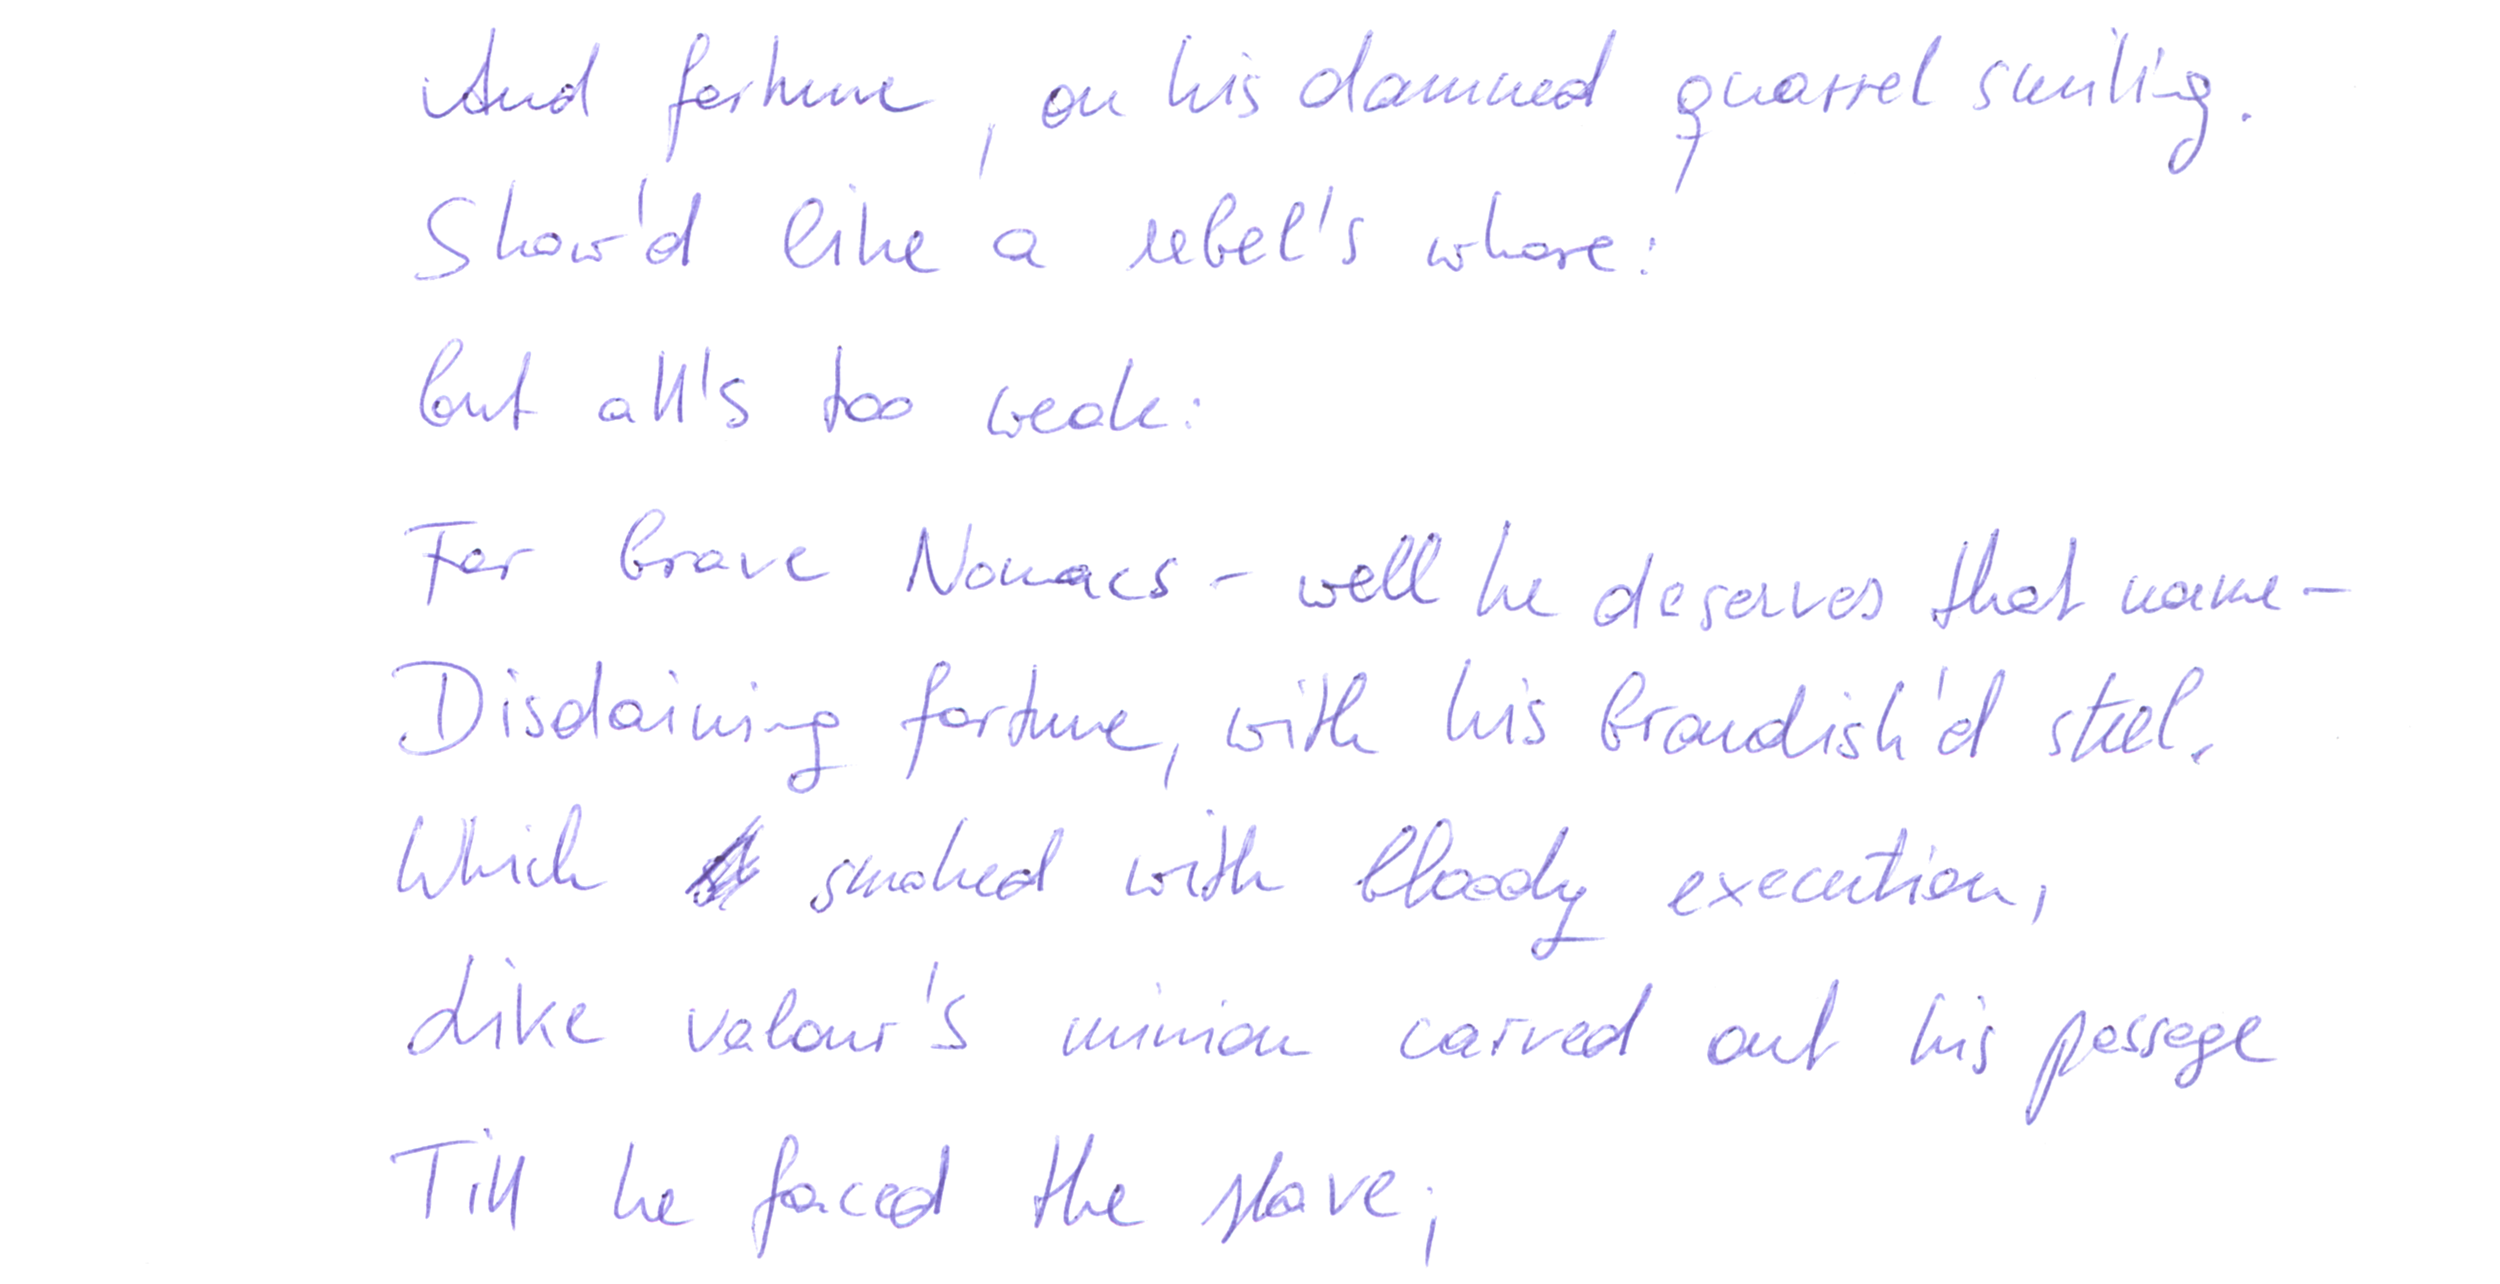 And fortune, on his damned quarrel smiling.
Show'd like a rebel's whore:
but all's too weak:
For brave Nomacs - well he deserves that name -
Disdaining fortune, with his brandish'd steel.
Which smoked with bloody execution,
Like valour's minion carved out his passage
Till he faced the slave;